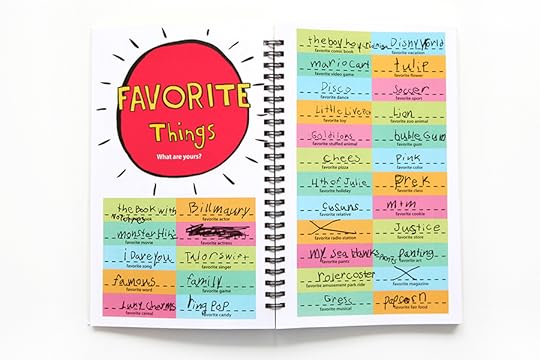 FAVORITE
Things
What are yours?
the Book with
No Pictures
favorite book
Bill maury
favorite actor
monster High
favorite movie
favorite actress
i Dare You
favorite song
Talor swift
favorite singer
famous
favorite word
family
favorite game
Luky charms
favorite cereal
ring pop
favorite candy
the boy
favorite comic book
Disny World
favorite vacation
mario cart
favorite video game
tulip
favorite flower
Disco
favorite dance
Soccer
favorite sport
Little
favorite toy
Lion
favorite zoo animal
Goldilons
favorite stuffed animal
buble Gum
favorite gum
chees
favorite pizza
Pink
favorite color
4th of Julie
favorite holiday
Prek
favorite class
cusuns
favorite relative
m+m
favorite cookie
favorite radio station
Justice
favorite store
my sea
pants
favorite pants
Panting
favorite art
rolercoster
favorite amusement park ride
favorite magazine
Gress
favorite musical
popcorn
favorite fair food